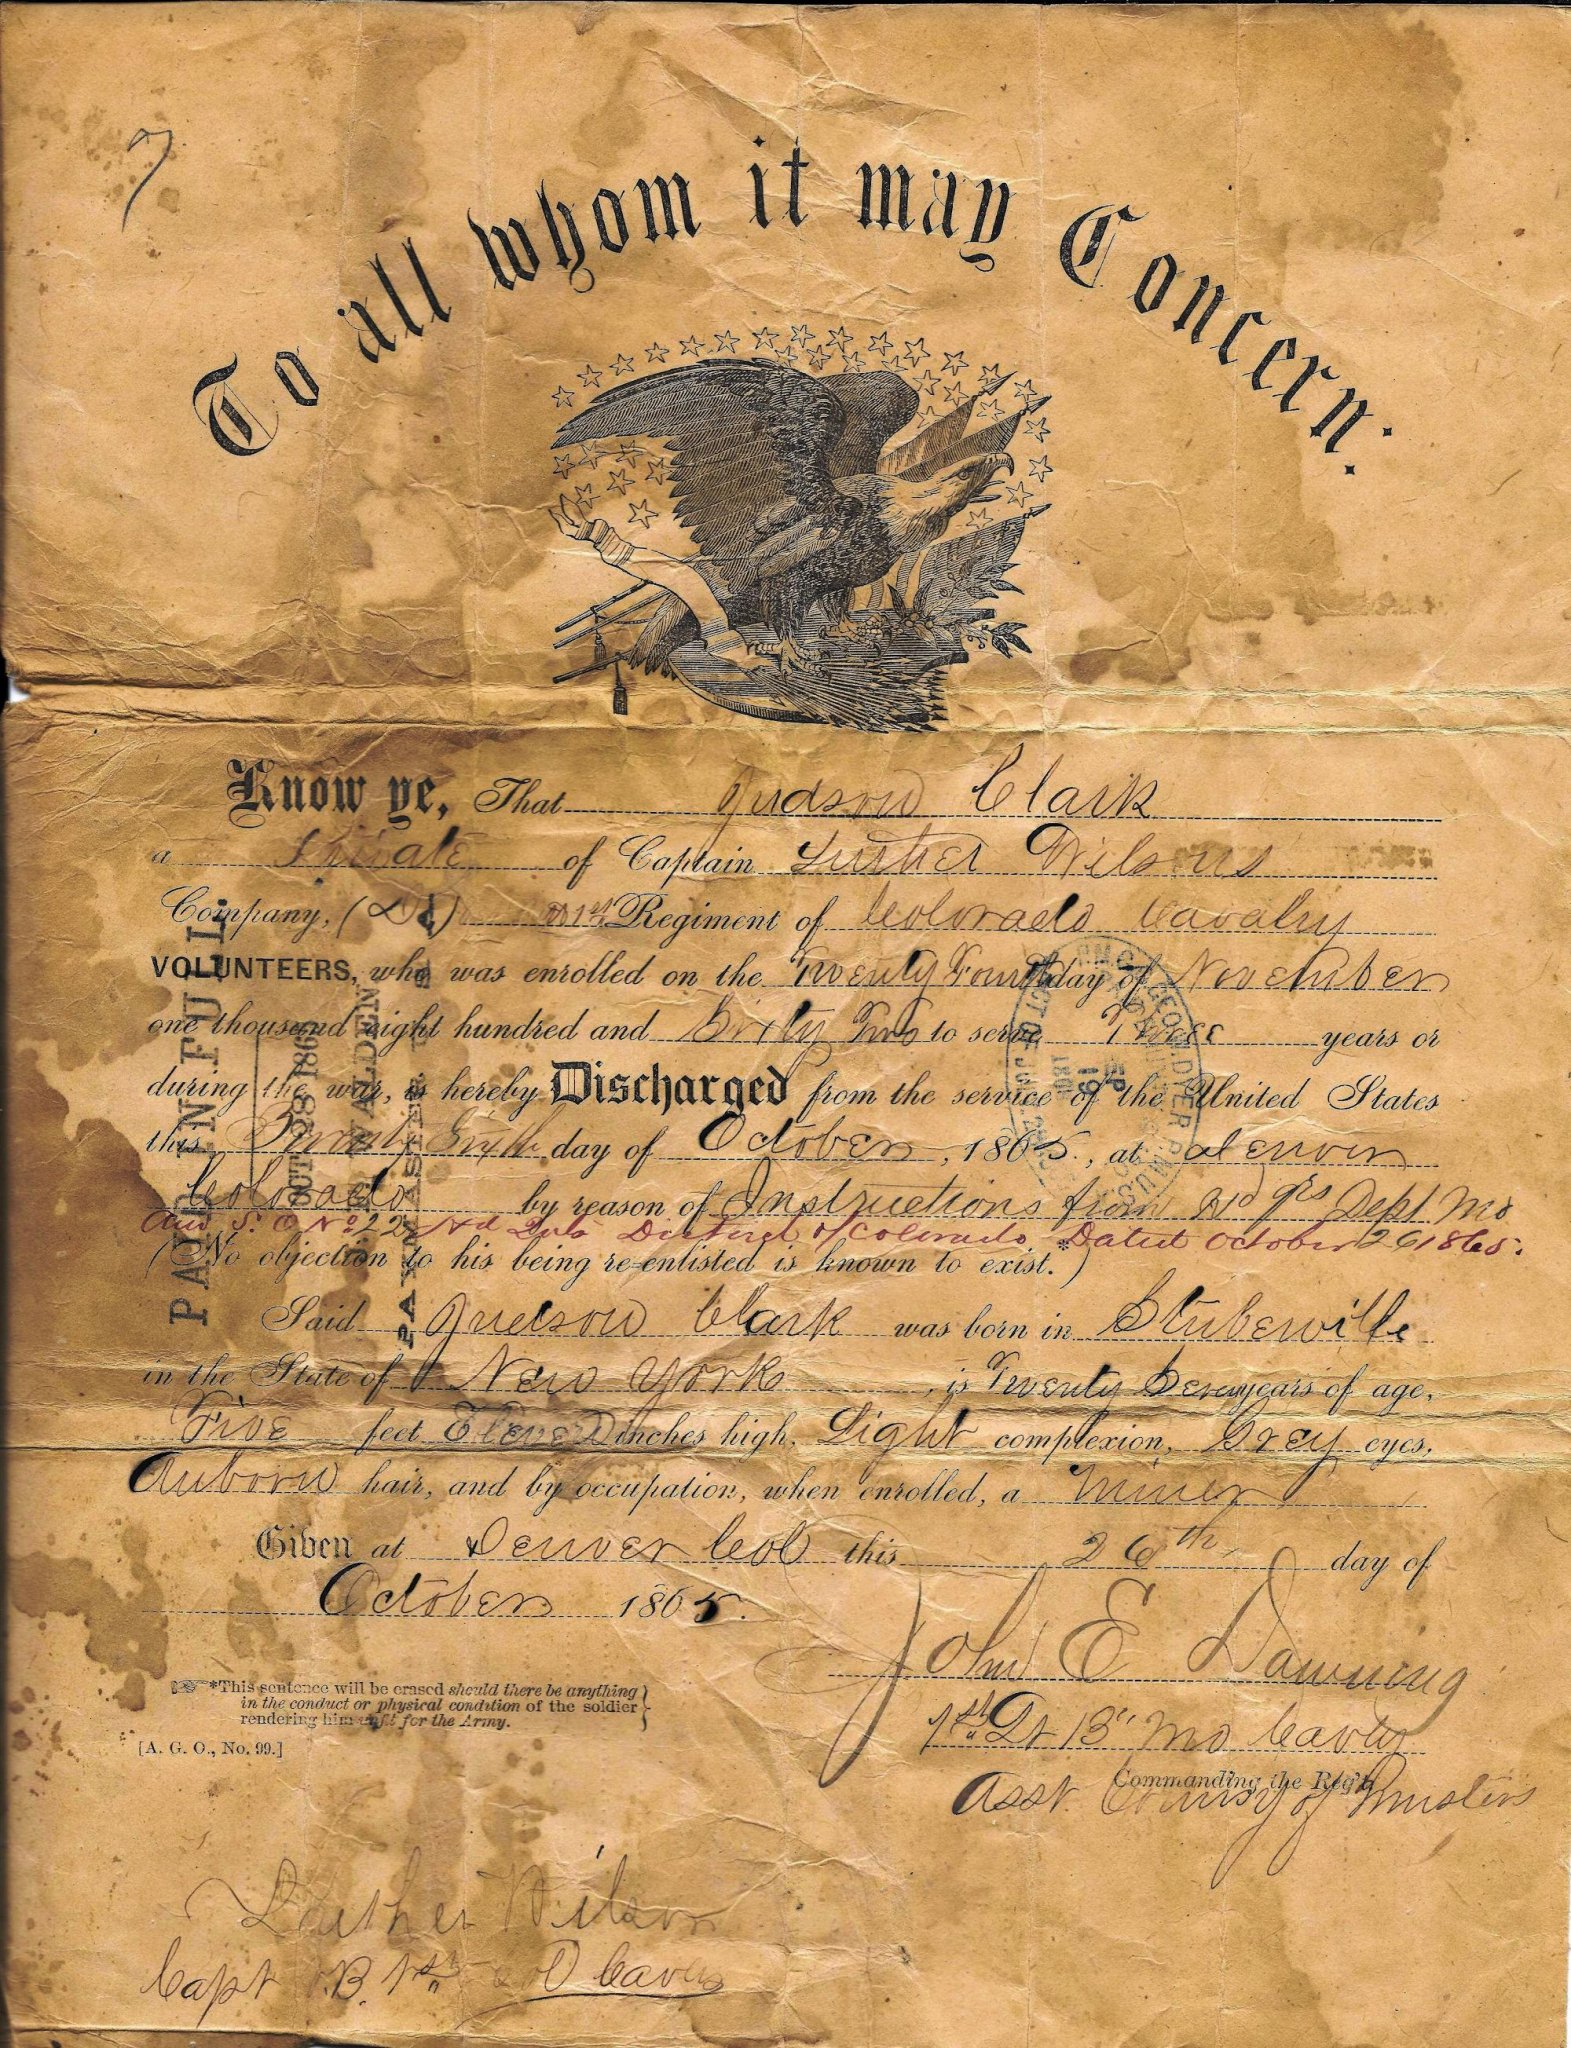 7
To all whom it may Concern:
Know ye, That Judson Clark
a Private of Captain Luther Wilsons
Company, ( ) 1st Regiment of Colorado Cavalry
VOLUNTEERS, who was enrolled on the Twenty Fourth day of November
one thousand eight hundred and Sixty Two to serve Three years or
during the war, is hereby Discharged from the service of the United States
this Twenty Sixth day of October, 1865, at Denver
Colorado by reason of Instructions from Hd qrs Dept Mo
and S. O. No 22 Hd Qrs District of Colorado Dated October 26 1865.
(No objection to his being re-enlisted is known to exist.*)
Said Judson Clark was born in Stuberville
in the State of New York, is Twenty Seven years of age,
Five feet Eleven inches high, Light complexion, Grey eyes,
Auborn hair, and by occupation, when enrolled, a Miner
Given at Denver Col this 26th day of
October 1865.
John E Dawning
1st Lt 13" Mo Cavly
Commanding the Reg't.
Asst Comsy of Musters
*This sentence will be erased should there be anything
in the conduct or physical condition of the soldier
rendering him unfit for the Army.
[A. G. O., No. 99.]
Luther Wilson
Capt B. 1st Col Cavly
PAID IN FULL.
OCT 28 186
WALDEN
PAYMASTER U.S.A.